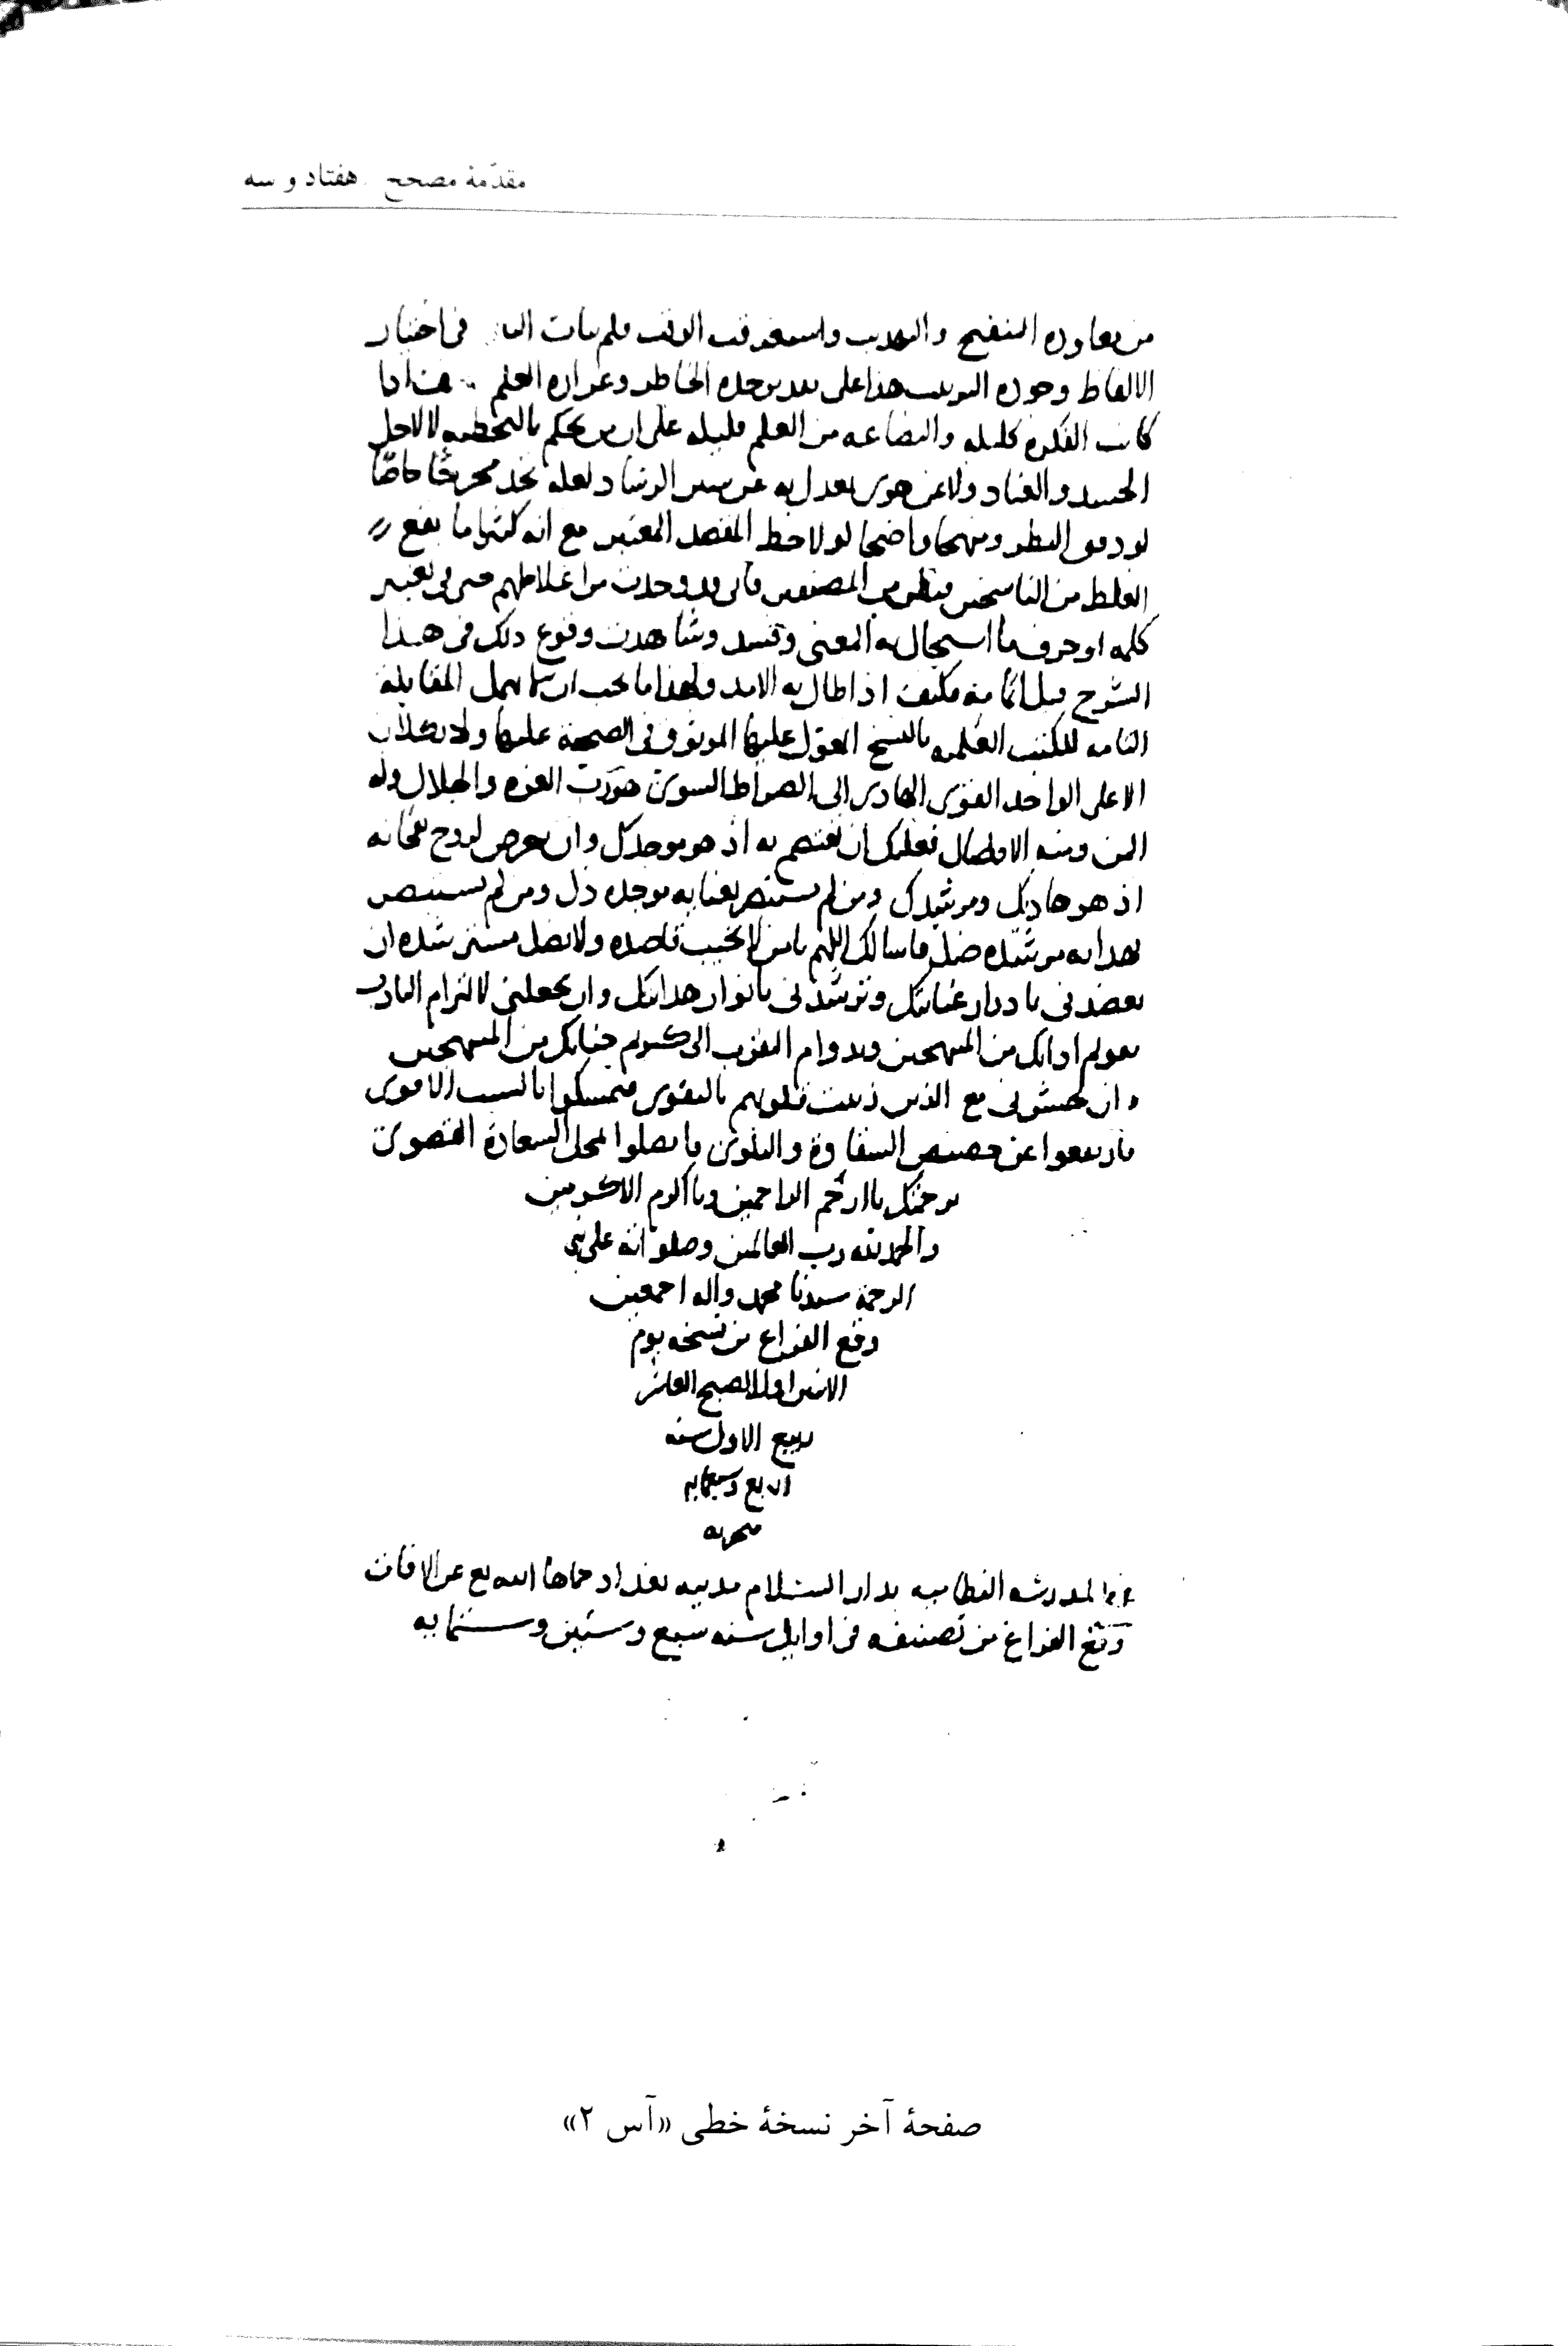 مقدّمهٔ مصحح هفتاد و سه
من معاوده التنقيح والتهذيب واستغرقت الوقت فلم يتات فى اختيار
الالفاظ وجوده التركيب هذا على تقدير حده الخاطر وغزاره العلم اذا
كانت الفكره كليله والبضاعه من العلم قليله على ان من يحكم بالتخطيه لا لاجل
الحسد والعناد ولا عن هوى يعدل به عن سنن الرشاد لعله يجد
لو دقق النظر ومنهجا واضحا لو لاحظ المقصد المعتبر مع انه كثيرا ما يقع
الغلط من الناسخين المصنفين فانى قد وجدت من اغلاطهم فى تغيير
كلمه او حرف ما استحال به المعنى وفسد وشاهدت وقوع ذلك فى هذا
الشرح قبل اتمامه فكيف اذا طال به الامد ولهذا ما يجب ان لا يهمل المقابله
التامه للكتب العلميه بالنسخ المعول عليها الموثوق فى الصحه عليها ولا تكلان
الا على الواحد القوى الهادى الى الصراط السوى هو رب العزه والجلال وله
المن ومنه الافضال فعليك ان تعتصم به اذ هو موجدك وان تعرض لروح نفحاته
اذ هو هاديك ومرشدك ومن لم يستنصر بعنايه موجده ذل ومن لم يستبصر
بهدايه مرشده ضل فاسالك اللهم يا من لا يخيب قاصده ولا يضل مسترشده ان
تعضدنى بادرار عنايتك وترشدنى بانوار هدايتك وان تجعلنى لالتزام التادب
بقويم ادابك من المنتهجين وبدوام التقرب الى كريم جنابك من المبتهجين
وان تحشرنى مع الذين زينت قلوبهم بالتقوى فتمسكوا بالسبب الاقوى
فارتفعوا عن حضيض الشقاوة والبلوى فاتصلوا لمحل السعادة القصوى
برحمتك يا ارحم الراحمين ويا اكرم الاكرمين
والحمد لله رب العالمين وصلواته على نبى
الرحمة سيدنا محمد واله اجمعين
وقع الفراغ من نسخه يوم
الاثنين اول الصبح العاشر
ربيع الاول سنه
اربع وسبعمايه
هجريه
المدرسه النظاميه بدار السلام مدينه بغداد حماها الله تع عن الافات
وقع الفراغ من تصنيفه فى اوايل سنه سبع وستين وستمايه
صفحهٔ آخر نسخهٔ خطی «آس ۲»